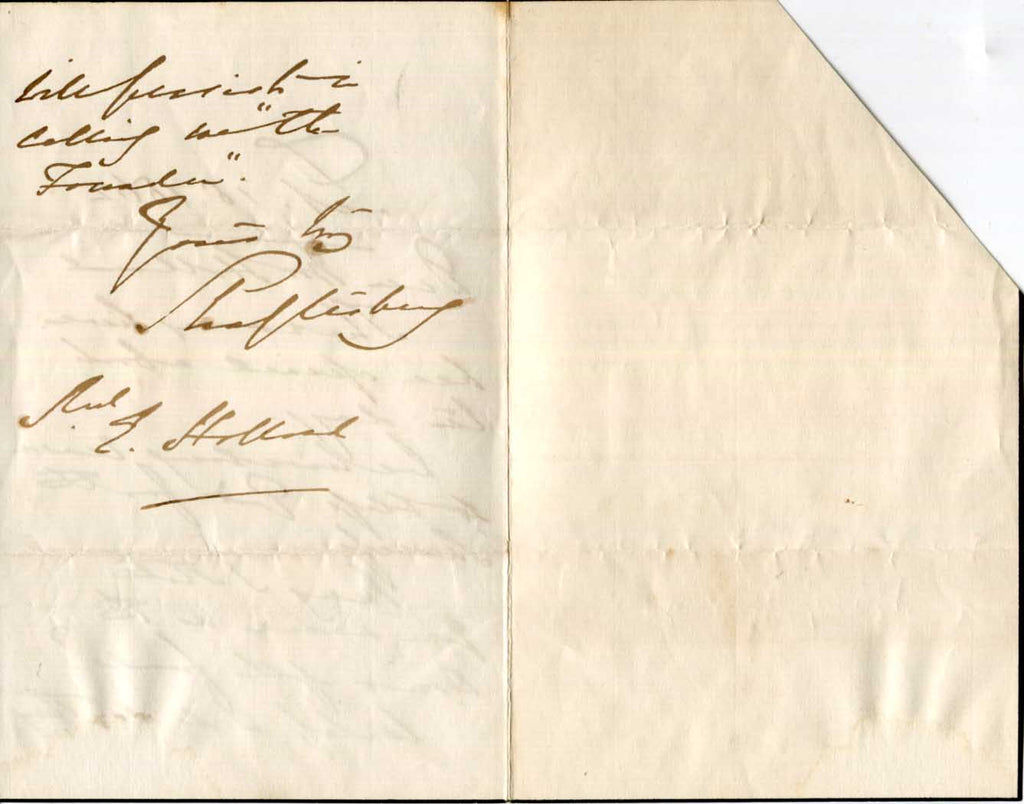 will persist in
calling me "the
Founder".
Yours trly
Shaftesbury
Revd
E. Holland